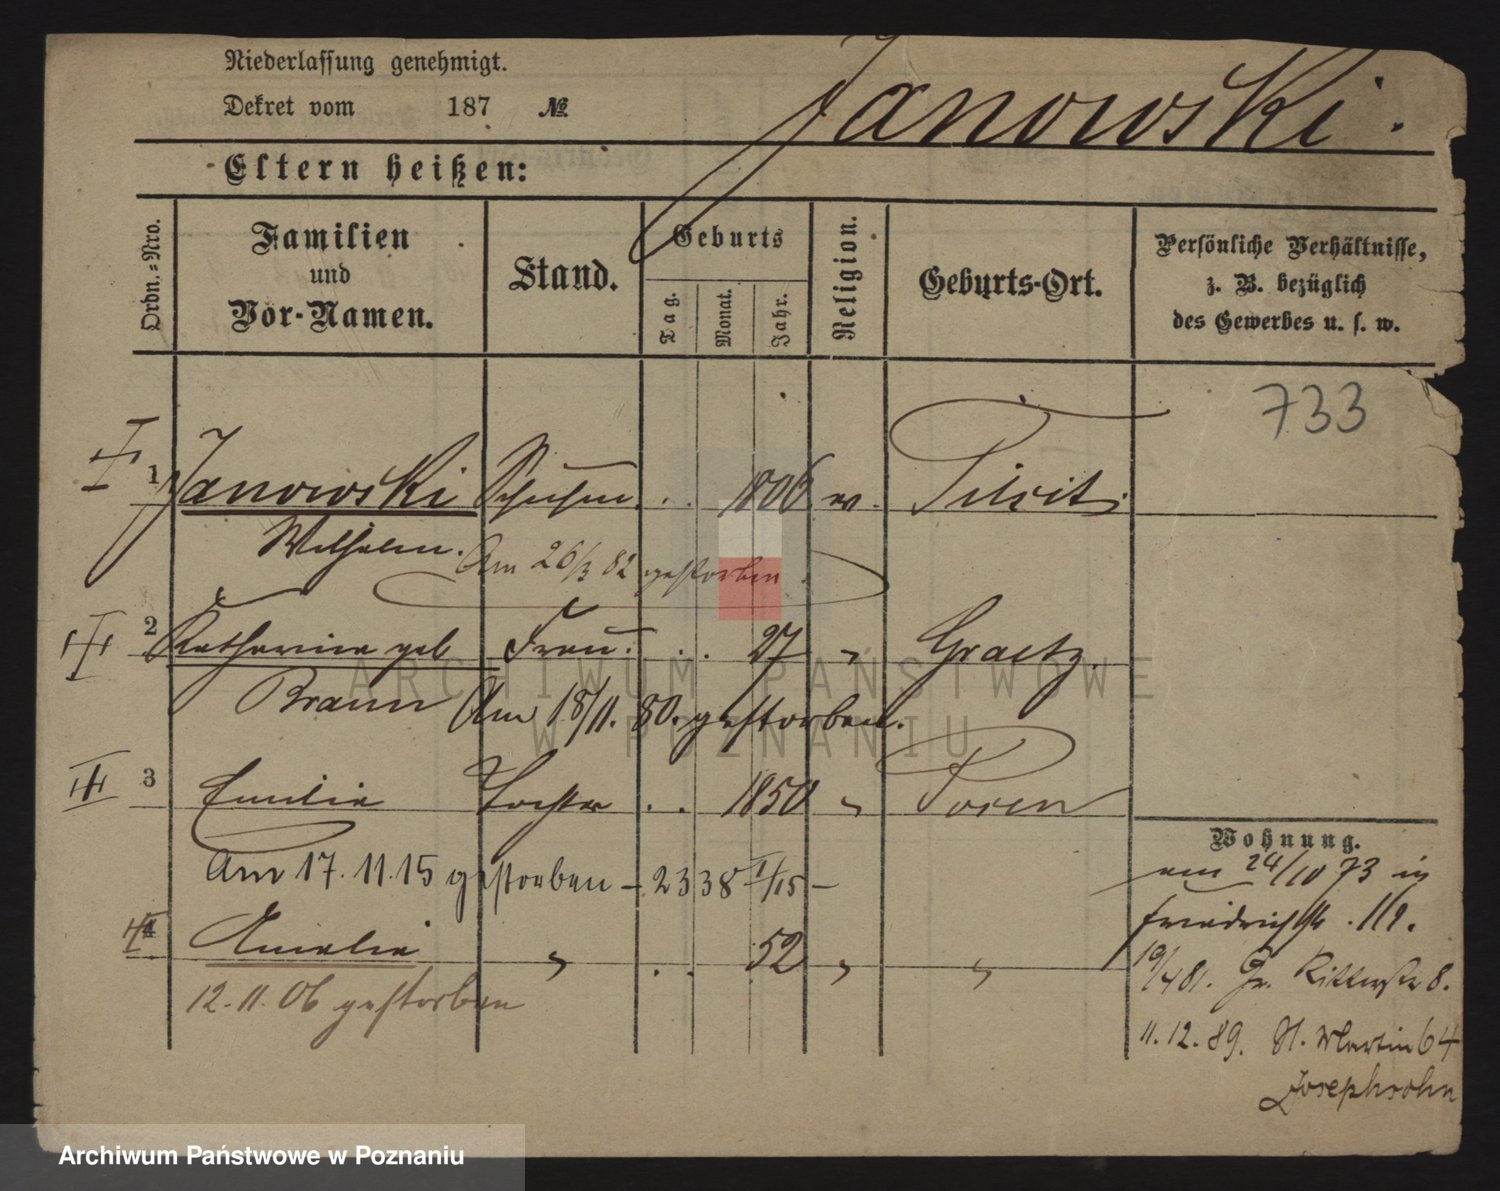 Niederlassung genehmigt.
Dekret vom 187 №
Janowski.
Eltern heißen:
Ordn.=Nro.
Familien
und
Vor-Namen.
Stand.
Geburts
Tag.
Monat.
Jahr.
Religion.
Geburts-Ort.
Persönliche Verhältnisse,
z. B. bezüglich
des Gewerbes u. s. w.
733
I 1 Janowski . . 1806 Tilsit.
Wilhelm.
Am 26/3 82 gestorben.
2 Katharina geb Frau . . 27 " Graetz.
Braun
Am 18/11. 80. gestorben.
III 3 Emilie Tochter . . 1850 " Posen
Am 17. 11. 15 gestorben – 2338 I/15 –
4 Amalie " . . 52 " "
12. 11. 06 gestorben
Wohnung.
24/10 73 in
Friedrichstr. 11
19/4 81. Gr. Ritterstr 8.
11. 12. 89. St. Martin 64
Josephsohn
ARCHIWUM PAŃSTWOWE
W POZNANIU
Archiwum Państwowe w Poznaniu